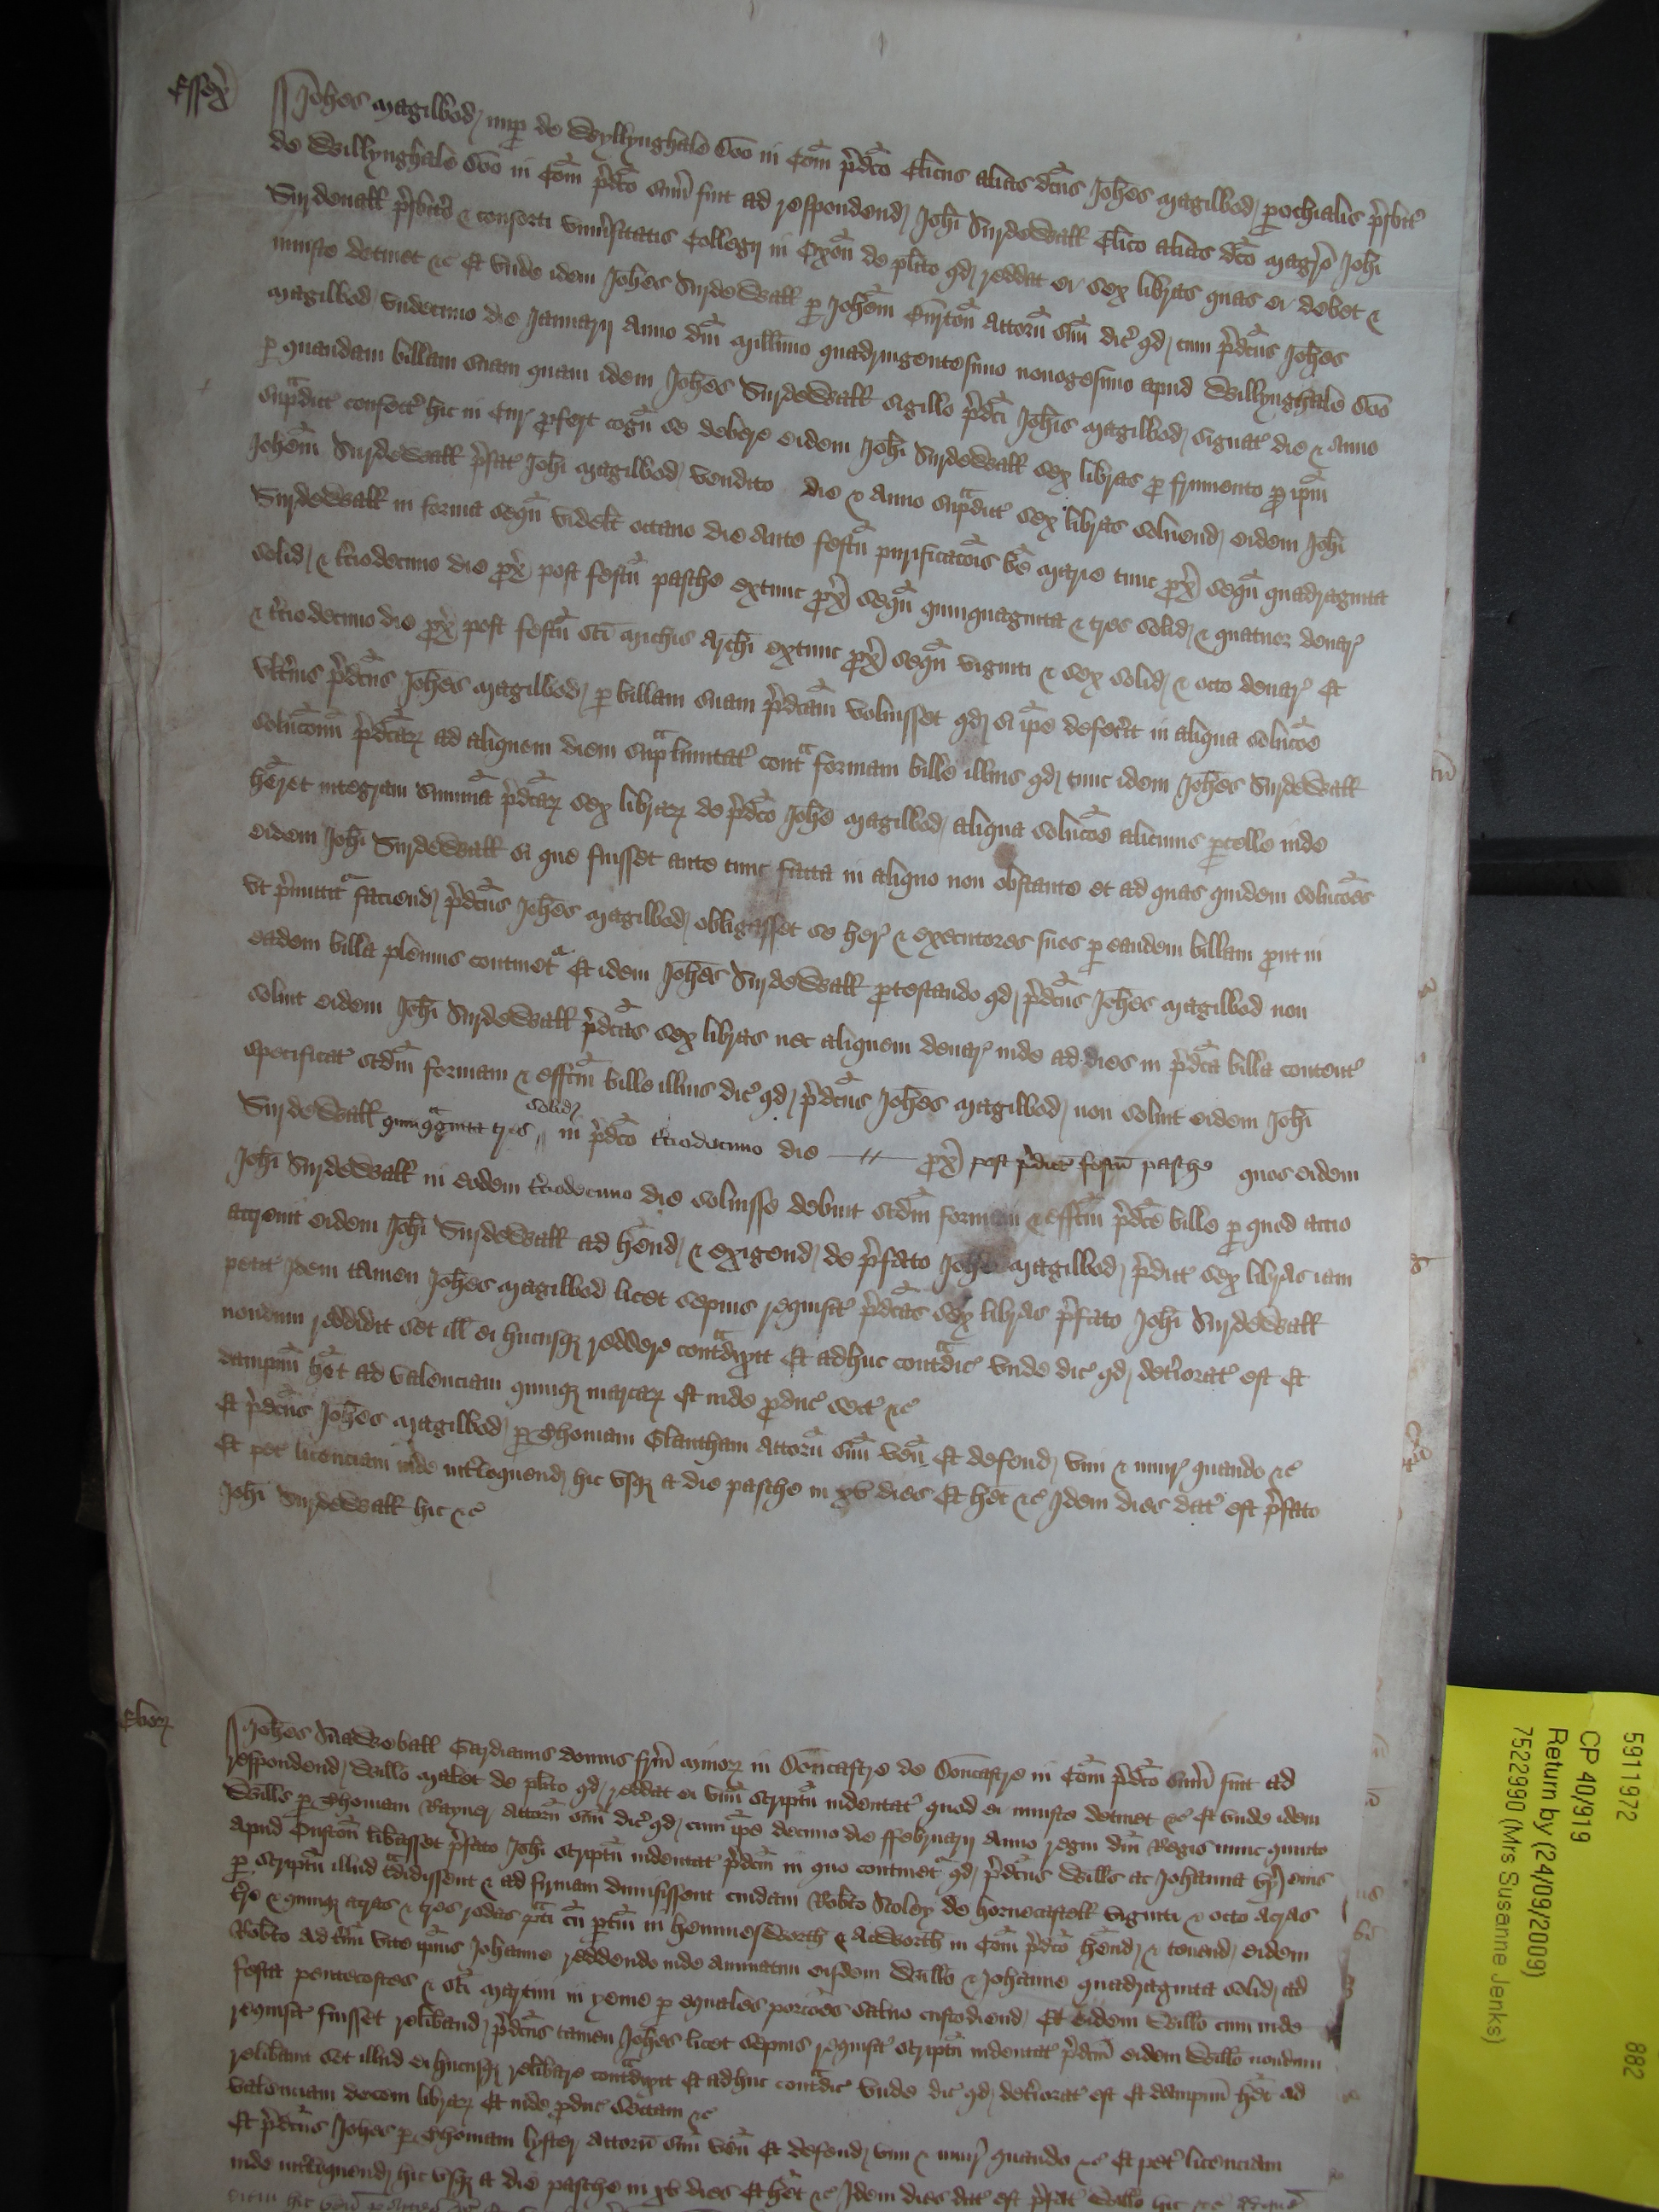 Essex̃ Joħes Magilbod nup de Wyllynghale Doo in Com̃ p̃dc̃o Cl̃icus alias dc̃us Joħes Magilbod pochialis p̃sbit̃
de Willynghale Doo in Com̃ p̃dc̃o sum̃ fuit ad respondend Joħi Surdewall Cl̃ico alias dc̃o Magr̃o Joħi
Surdewall p̃sbit̃o & consorti uniṽsitatis Collegij in Oxoñ de pl̃ito qd reddat ei sex libras quas ei debet &
iniuste detinet &c Et unde idem Joħes Surdewall p Joħem attorñ suũ dic̃ qd cum p̃dc̃us Joħes
Magilbod undecimo die Januarij Anno dñi Mill̃imo quadringentesimo nonogesimo apud Willynghale Doo
p quandam billam suam quam idem Joħes Surdewall sigillo p̃dc̃i Joħis Magilbod signat̃ die & Anno
sup̃dict̃ confect̃ hic in Cur̃ profert cogñ se debere eidem Joħi Surdewall sex libras p frumento p ip̃m
Joħem Surdewall p̃fat̃ Joħi Magilbod vendito die & Anno sup̃dict̃ sex libras solvend eidem Joħi
Surdewall in forma sequñ videl̃t octavo die ante festũ purificac̃ois b̃e Marie tunc prox̃ sequñ quadraginta
solid & t̃ciodecimo die prox̃ post festũ pasche extunc prox̃ sequñ quinquaginta & tres solid & quatuor denar̃
& t̃ciodecimo die prox̃ post festũ sc̃i Mich̃is Arch̃i extunc prox̃ sequñ viginti & sex solid & octo denar̃ Et
ult̃ius p̃dc̃us Joħes Magilbod p billam suam p̃dc̃am voluisset qd si ip̃e defec̃it in aliqua soluc̃oe
soluc̃onũ p̃dc̃ar̃ ad aliquem diem sup̃limitat̃ cont̃ formam bille illius qd tunc idem Joħes Surdewall
h̃eret integram sum̃a p̃dc̃ar̃ sex librar̃ de p̃dc̃o Joħe Magilbod aliqua soluc̃oe alicuius pcelle inde
eidem Joħi Surdewall si que fuisset ante tunc facta in aliquo non obstante et ad quas quidem soluc̃oes
ut p̃mittit̃ faciend p̃dc̃us Joħes Magilbod obligasset se her̃ & executores suos p eandem billam prout in
eadem billa plenius continet̃ Et idem Joħes Surdewall protestando qd p̃dc̃us Joħes Magilbod non
solvit eidem Joħi Surdewall p̃dc̃as sex libras nec aliquem denar̃ inde ad dies in p̃dc̃a billa content̃
specificat̃ scdm̃ formam & effc̃m bille illius dic̃ qd p̃dc̃us Joħes Magilbod non solvit eidem Joħi
Surdewall quinquaginta tres solid in p̃dc̃o t̃ciodecimo die prox̃ post p̃dict̃ festũ pasche quos eidem
Joħi Surdewall in eodem t̃ciodecimo die solvisse debuit scdm̃ formam & effc̃m p̃dc̃e bille p quod accio
accrevit eidem Joħi Surdewall ad h̃end & exigend de p̃fato Joħe Magilbod p̃dict̃ sex libras iam
petit̃ Idem tamen Joħes Magilbod licet sepius requisit̃ p̃dc̃as sex libras p̃fato Joħi Surdewall
nondum reddidit set ill̃ ei hucusq reddere cont̃dixit Et adhuc cont̃dic̃ unde dic̃ qd det̃iorat̃ est Et
dampnũ h̃et ad valenciam quinq marcar̃ Et inde produc̃ sect̃ &c
Et p̃dc̃us Joħes Magilbod p Thomam Glantham attorñ suũ veñ Et defend vim & iniur̃ quando &c
Et pet̃ licenciam inde int̃loquend hic usq a die pasche in xv dies Et h̃et &c Idem dies dat̃ est p̃fato
Joħi Surdewall hic &c
Ebor̃ Joħes Snawball Gardianus domus frm̃ Minor̃ in Doncastre de Doncastre in Com̃ p̃dc̃o sum̃ fuit ad
respondend Will̃o Malet de pl̃ito qd reddat ei unũ scriptũ indentat̃ quod ei iniuste detinet &c Et unde idem
Will̃s p Thomam Rayner attorñ suũ dic̃ qd cum ip̃e decimo die ffebruarij anno regni dñi Regis nunc quinto
apud lib̃asset p̃fato Joħi scriptũ indentat̃ p̃dc̃m in quo continet̃ qd p̃dc̃us Will̃s ac Johanna ux̃ eius
p scriptũ illud t̃didissent & ad firmam dimisissent cuidam Rob̃to de Hornecastell viginti & octo acras
t̃re & quinq acras & tres rodas p̃ti cũ ptiñ in Hemmesworth & Acworth in Com̃ p̃dc̃o h̃end & tenend eidem
Rob̃to ad t̃m vite ip̃ius Johanne reddendo inde annuatim eisdem Will̃o & Johanne quadraginta solid ad
festa pentecostes & sc̃i Martini in yeme p equales porc̃oes salvo custodiend Et eidem Will̃o cum inde
requisit̃ fuisset relib̃and p̃dc̃us tamen Joħes licet sepius requisit̃ scriptũ indentat̃ p̃dc̃m eidem Will̃o nondum
relib̃avit set illud ei hucusq relib̃are cont̃dixit Et adhuc cont̃dic̃ unde dic̃ qd det̃iorat̃ est Et dampnũ h̃et ad
valenciam decem librar̃ Et inde produc̃ sectam &c
Et p̃dc̃us Joħes p Thomam lyster attorñ suũ veñ Et defend vim & iniur̃ quando &c Et pet̃ licenciam
inde int̃loquend hic usq a die pasche in xv dies Et h̃et &c Idem dies dat̃ est p̃fat̃ Will̃o hic &c
5911972 882
CP 40/919
Return by (24/09/2009)
7522990 (Mrs Susanne Jenks)